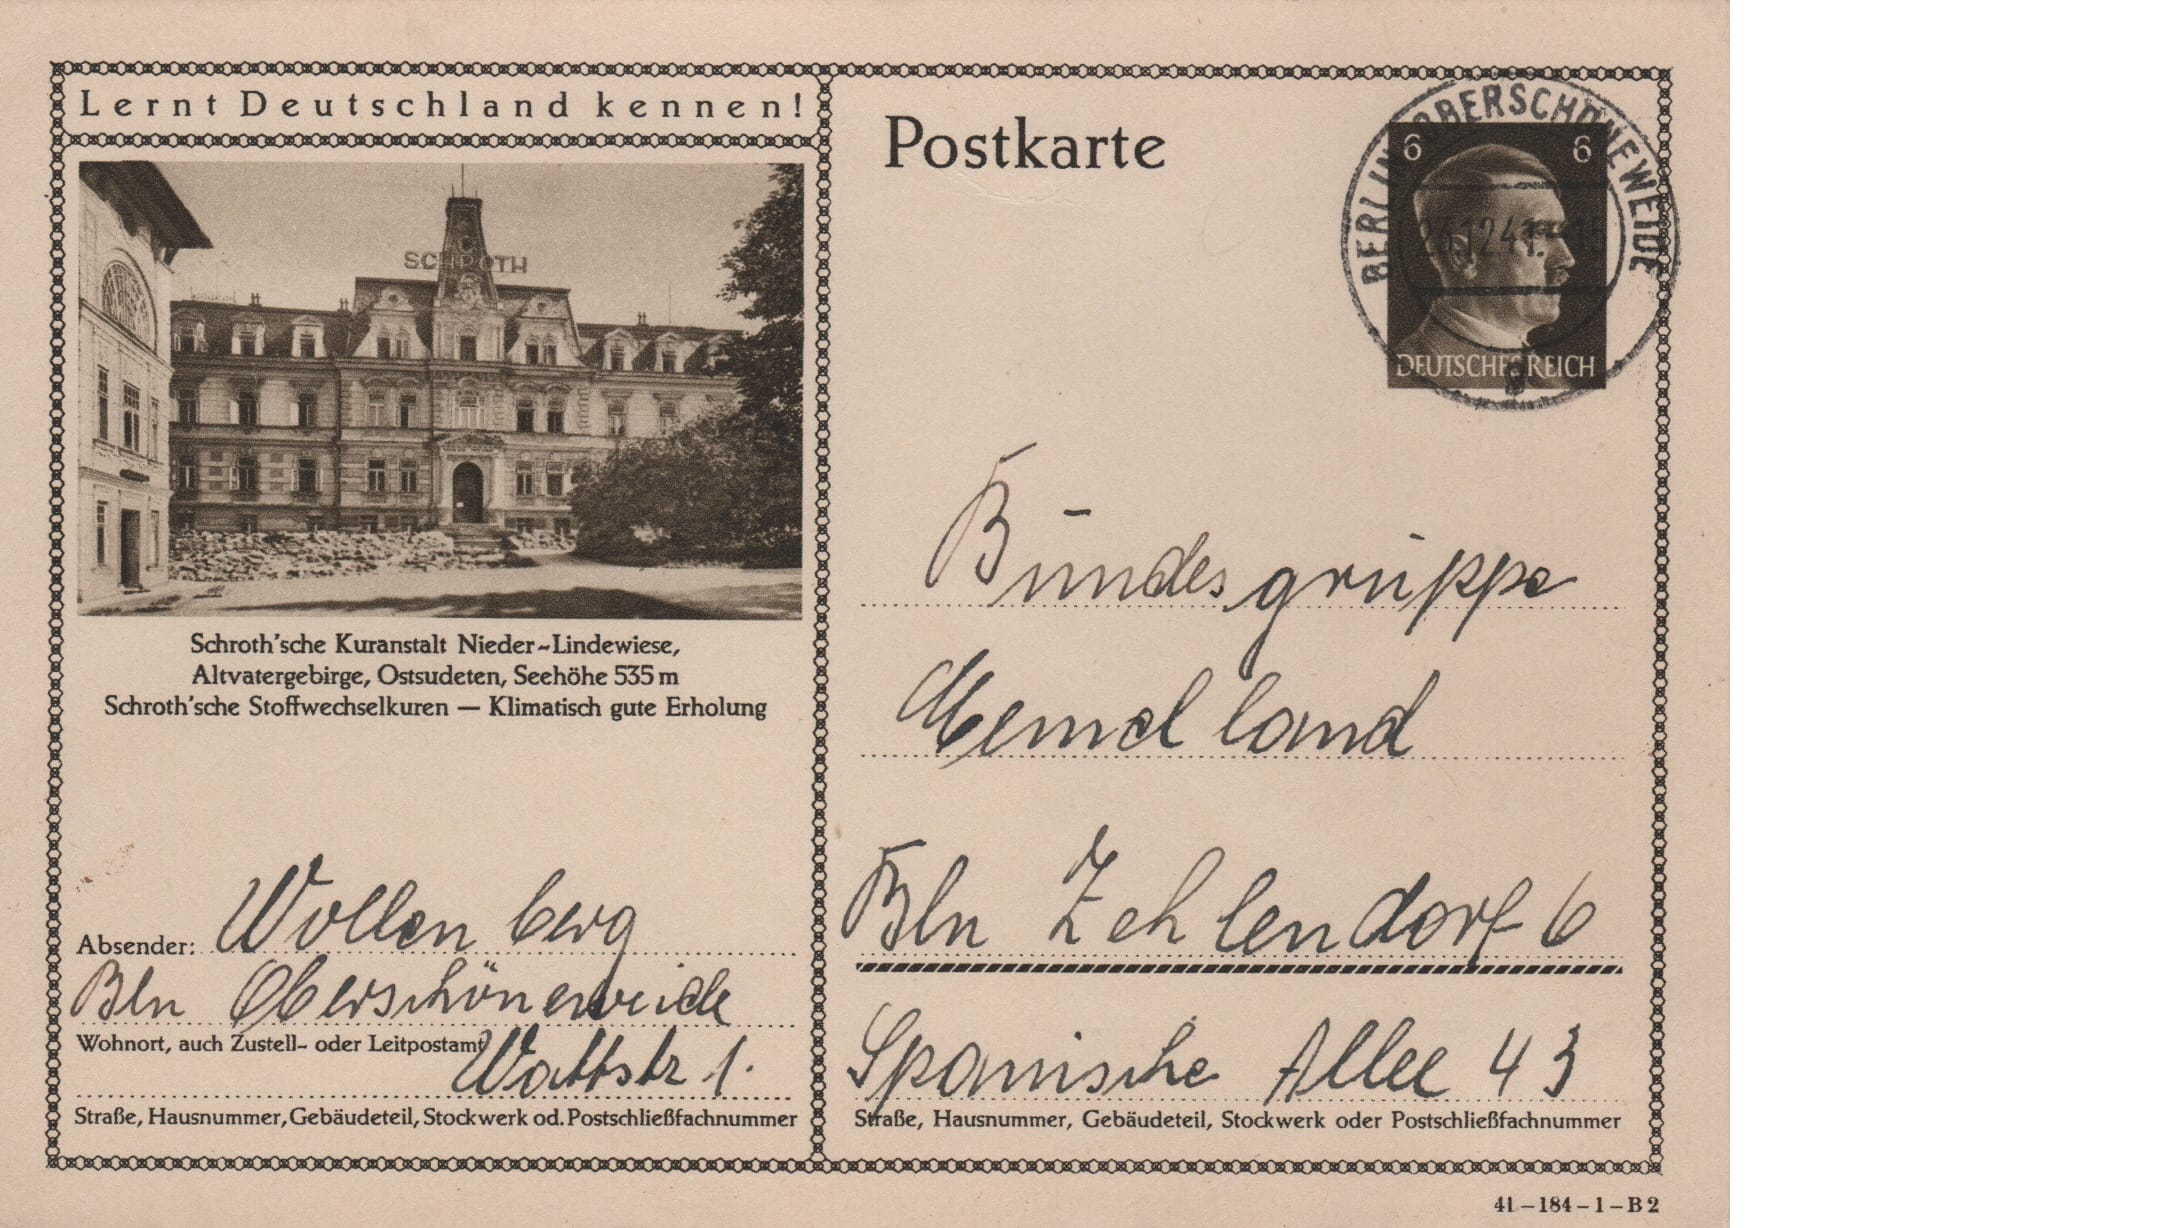 Lernt Deutschland kennen!
SCHROTH
Schroth'sche Kuranstalt Nieder-Lindewiese,
Altvatergebirge, Ostsudeten, Seehöhe 535 m
Schroth'sche Stoffwechselkuren — Klimatisch gute Erholung
Absender: Wollenberg
Bln Oberschöneweide
Wohnort, auch Zustell- oder Leitpostamt
Wattstr 1.
Straße, Hausnummer, Gebäudeteil, Stockwerk od. Postschließfachnummer
Postkarte
BERLIN OBERSCHÖNEWEIDE
6 6
12.41
DEUTSCHES REICH
Bundesgruppe
Memelland
Bln Zehlendorf 6
Spanische Allee 43
Straße, Hausnummer, Gebäudeteil, Stockwerk oder Postschließfachnummer
41-184-1-B2